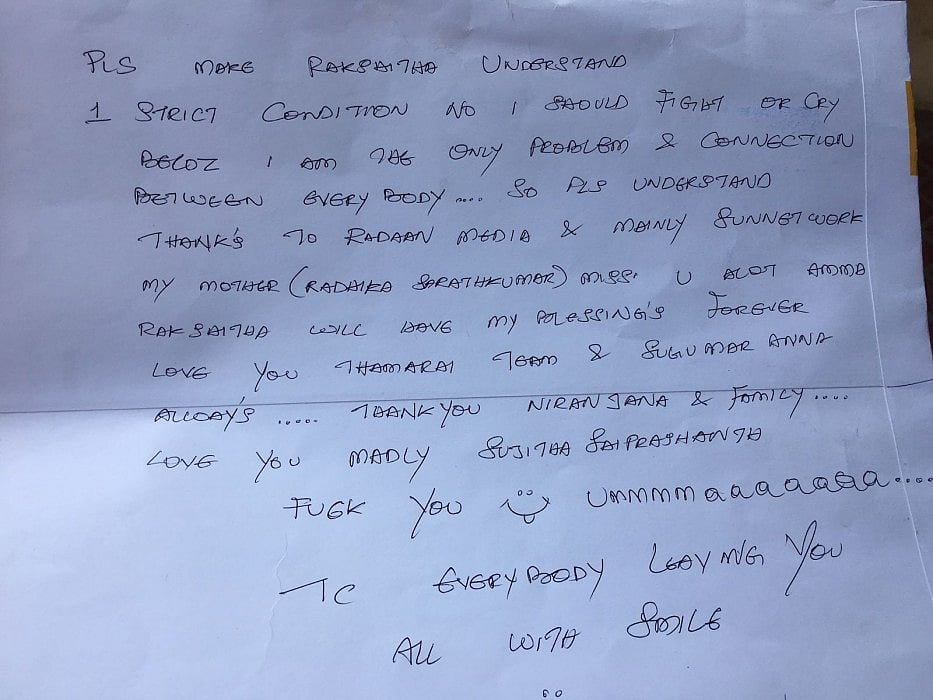 PLS MAKE RAKSHITHA UNDERSTAND
1 STRICT CONDITION NO 1 SHOULD FIGHT OR CRY
BECOZ I AM THE ONLY PROBLEM & CONNECTION
BETWEEN EVERY BODY .... SO PLS UNDERSTAND
THANK'S TO RADAAN MEDIA & MAINLY SUNNETWORK
MY MOTHER (RADHIKA SARATHKUMAR) MISS. U ALOT AMMA
RAKSHITHA WILL HAVE MY BLESSING'S FOREVER
LOVE YOU THAMARAI TEAM & SUGUMAR ANNA
ALLWAY'S ..... THANK YOU NIRANJANA & FAMILY ....
LOVE YOU MADLY SUJITHA SAIPRASHANTH
FUCK YOU ummmmaaaaaaa....
TC EVERYBODY LEAVING YOU
ALL WITH SMILE